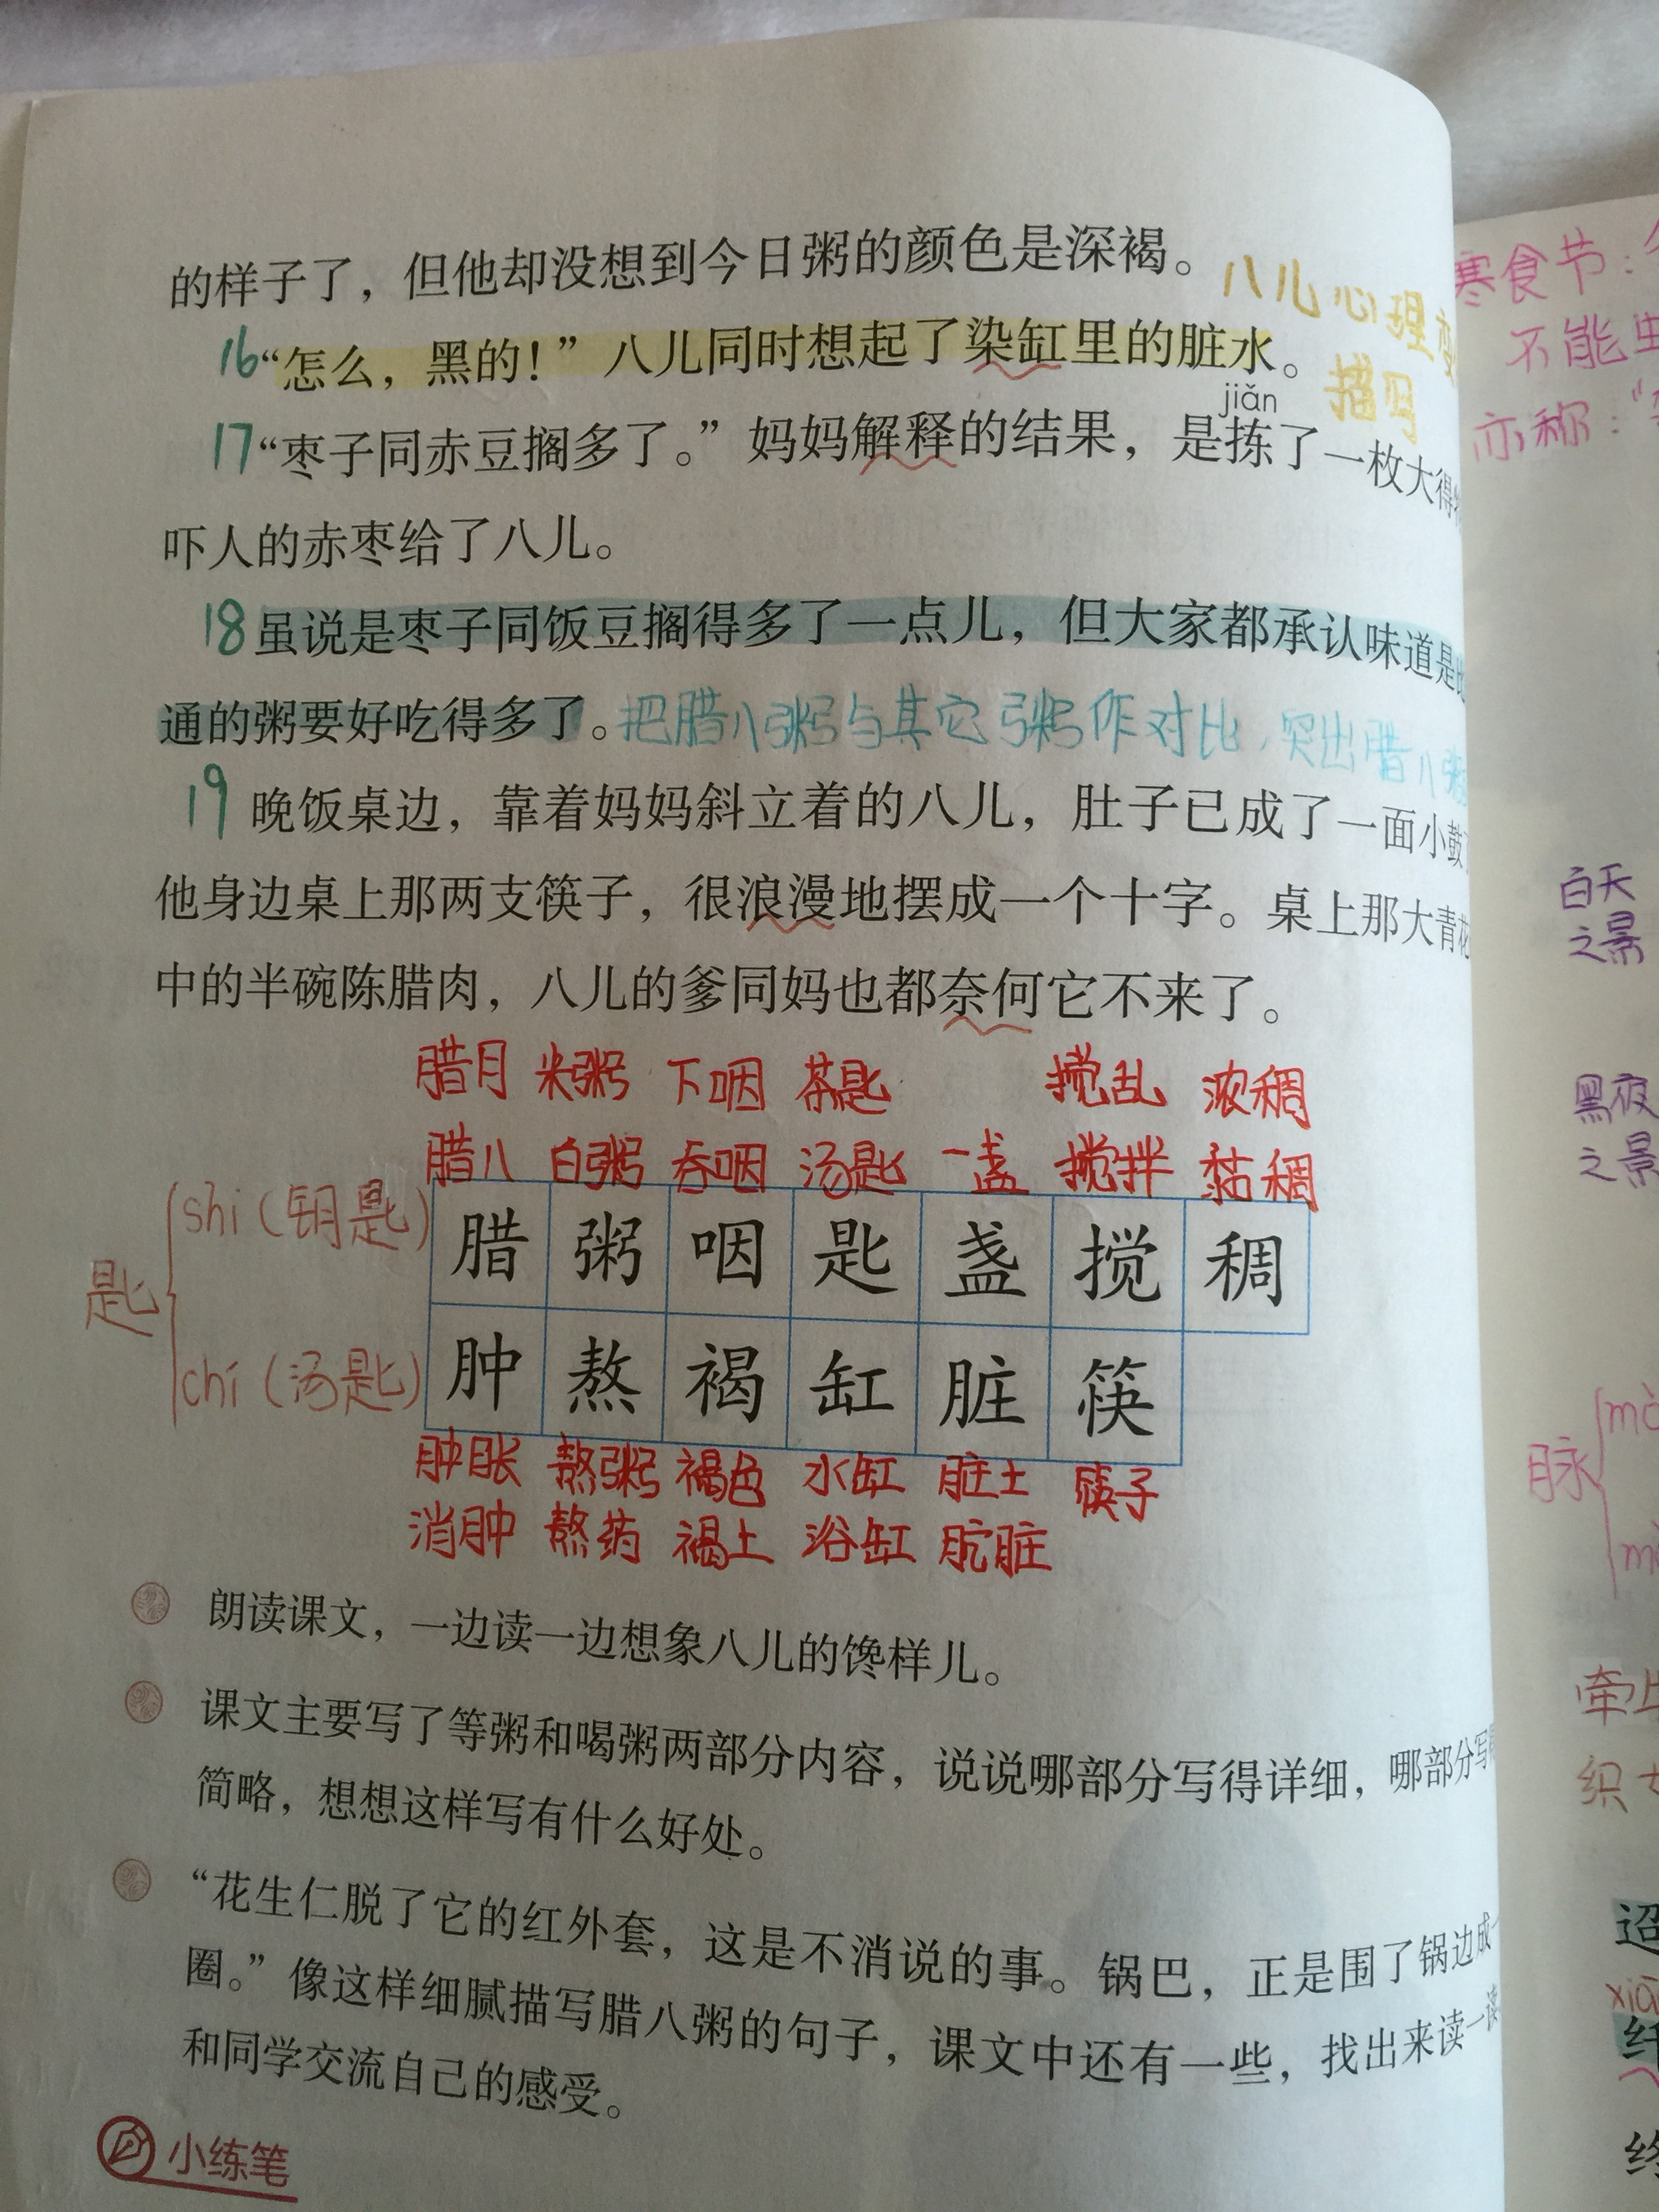 的样子了，但他却没想到今日粥的颜色是深褐。
八儿心理
描写
16“怎么，黑的！”八儿同时想起了染缸里的脏水。
jiǎn
17“枣子同赤豆搁多了。”妈妈解释的结果，是拣了一枚大得
吓人的赤枣给了八儿。
18虽说是枣子同饭豆搁得多了一点儿，但大家都承认味道是比
通的粥要好吃得多了。把腊八粥与其它粥作对比，突出腊八粥
19 晚饭桌边，靠着妈妈斜立着的八儿，肚子已成了一面小鼓
他身边桌上那两支筷子，很浪漫地摆成一个十字。桌上那大青花
中的半碗陈腊肉，八儿的爹同妈也都奈何它不来了。
腊月 米粥 下咽 茶匙 搅乱 浓稠
腊八 白粥 吞咽 汤匙 一盏 搅拌 黏稠
匙
shi（钥匙）
chí（汤匙）
腊 粥 咽 匙 盏 搅 稠
肿 熬 褐 缸 脏 筷
肿胀 熬粥 褐色 水缸 脏土 筷子
消肿 熬药 褐土 浴缸 肮脏
朗读课文，一边读一边想象八儿的馋样儿。
课文主要写了等粥和喝粥两部分内容，说说哪部分写得详细，哪部分写得
简略，想想这样写有什么好处。
“花生仁脱了它的红外套，这是不消说的事。锅巴，正是围了锅边成一
圈。”像这样细腻描写腊八粥的句子，课文中还有一些，找出来读一读
和同学交流自己的感受。
小练笔
寒食节：
不能
亦称：“
白天
之景
黑夜
之景
脉
牵
织